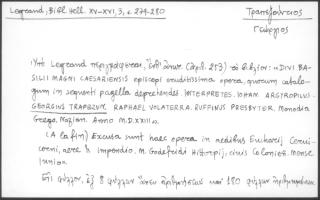 Legrand, Bibl. Hell. XV-XVI, 3, σ. 279-280
Τραπεζούντιος
Γεώργιος
Ὑπὸ Legrand περιγράφεται, (ἀρ. 273) τὸ βιβλίον: «DIVI BA-
SILII MAGNI CAESARIENSIS episcopi eruditissima opera, quorum catalo-
gum in sequenti pagella deprehendes. INTERPRETES. IOHAN. ARGYROPILUS.
GEORGIUS TRAPEZUN. RAPHAEL VOLATERRA. RUFFINUS PRESBYTER. Monodia
Grego. Nazian. Anno M.D.XXIII».
(A la fin) Excusa sunt haec opera in aedibus Eucharij Cerui-
corni, aere & impendio. M. Godefridi Hittorpij, ciuis Coloniensis. Mense
Iunio».
8 φύλλων ἄνευ ἀριθμήσεως καὶ 180 φύλλων ἠριθμημένων.